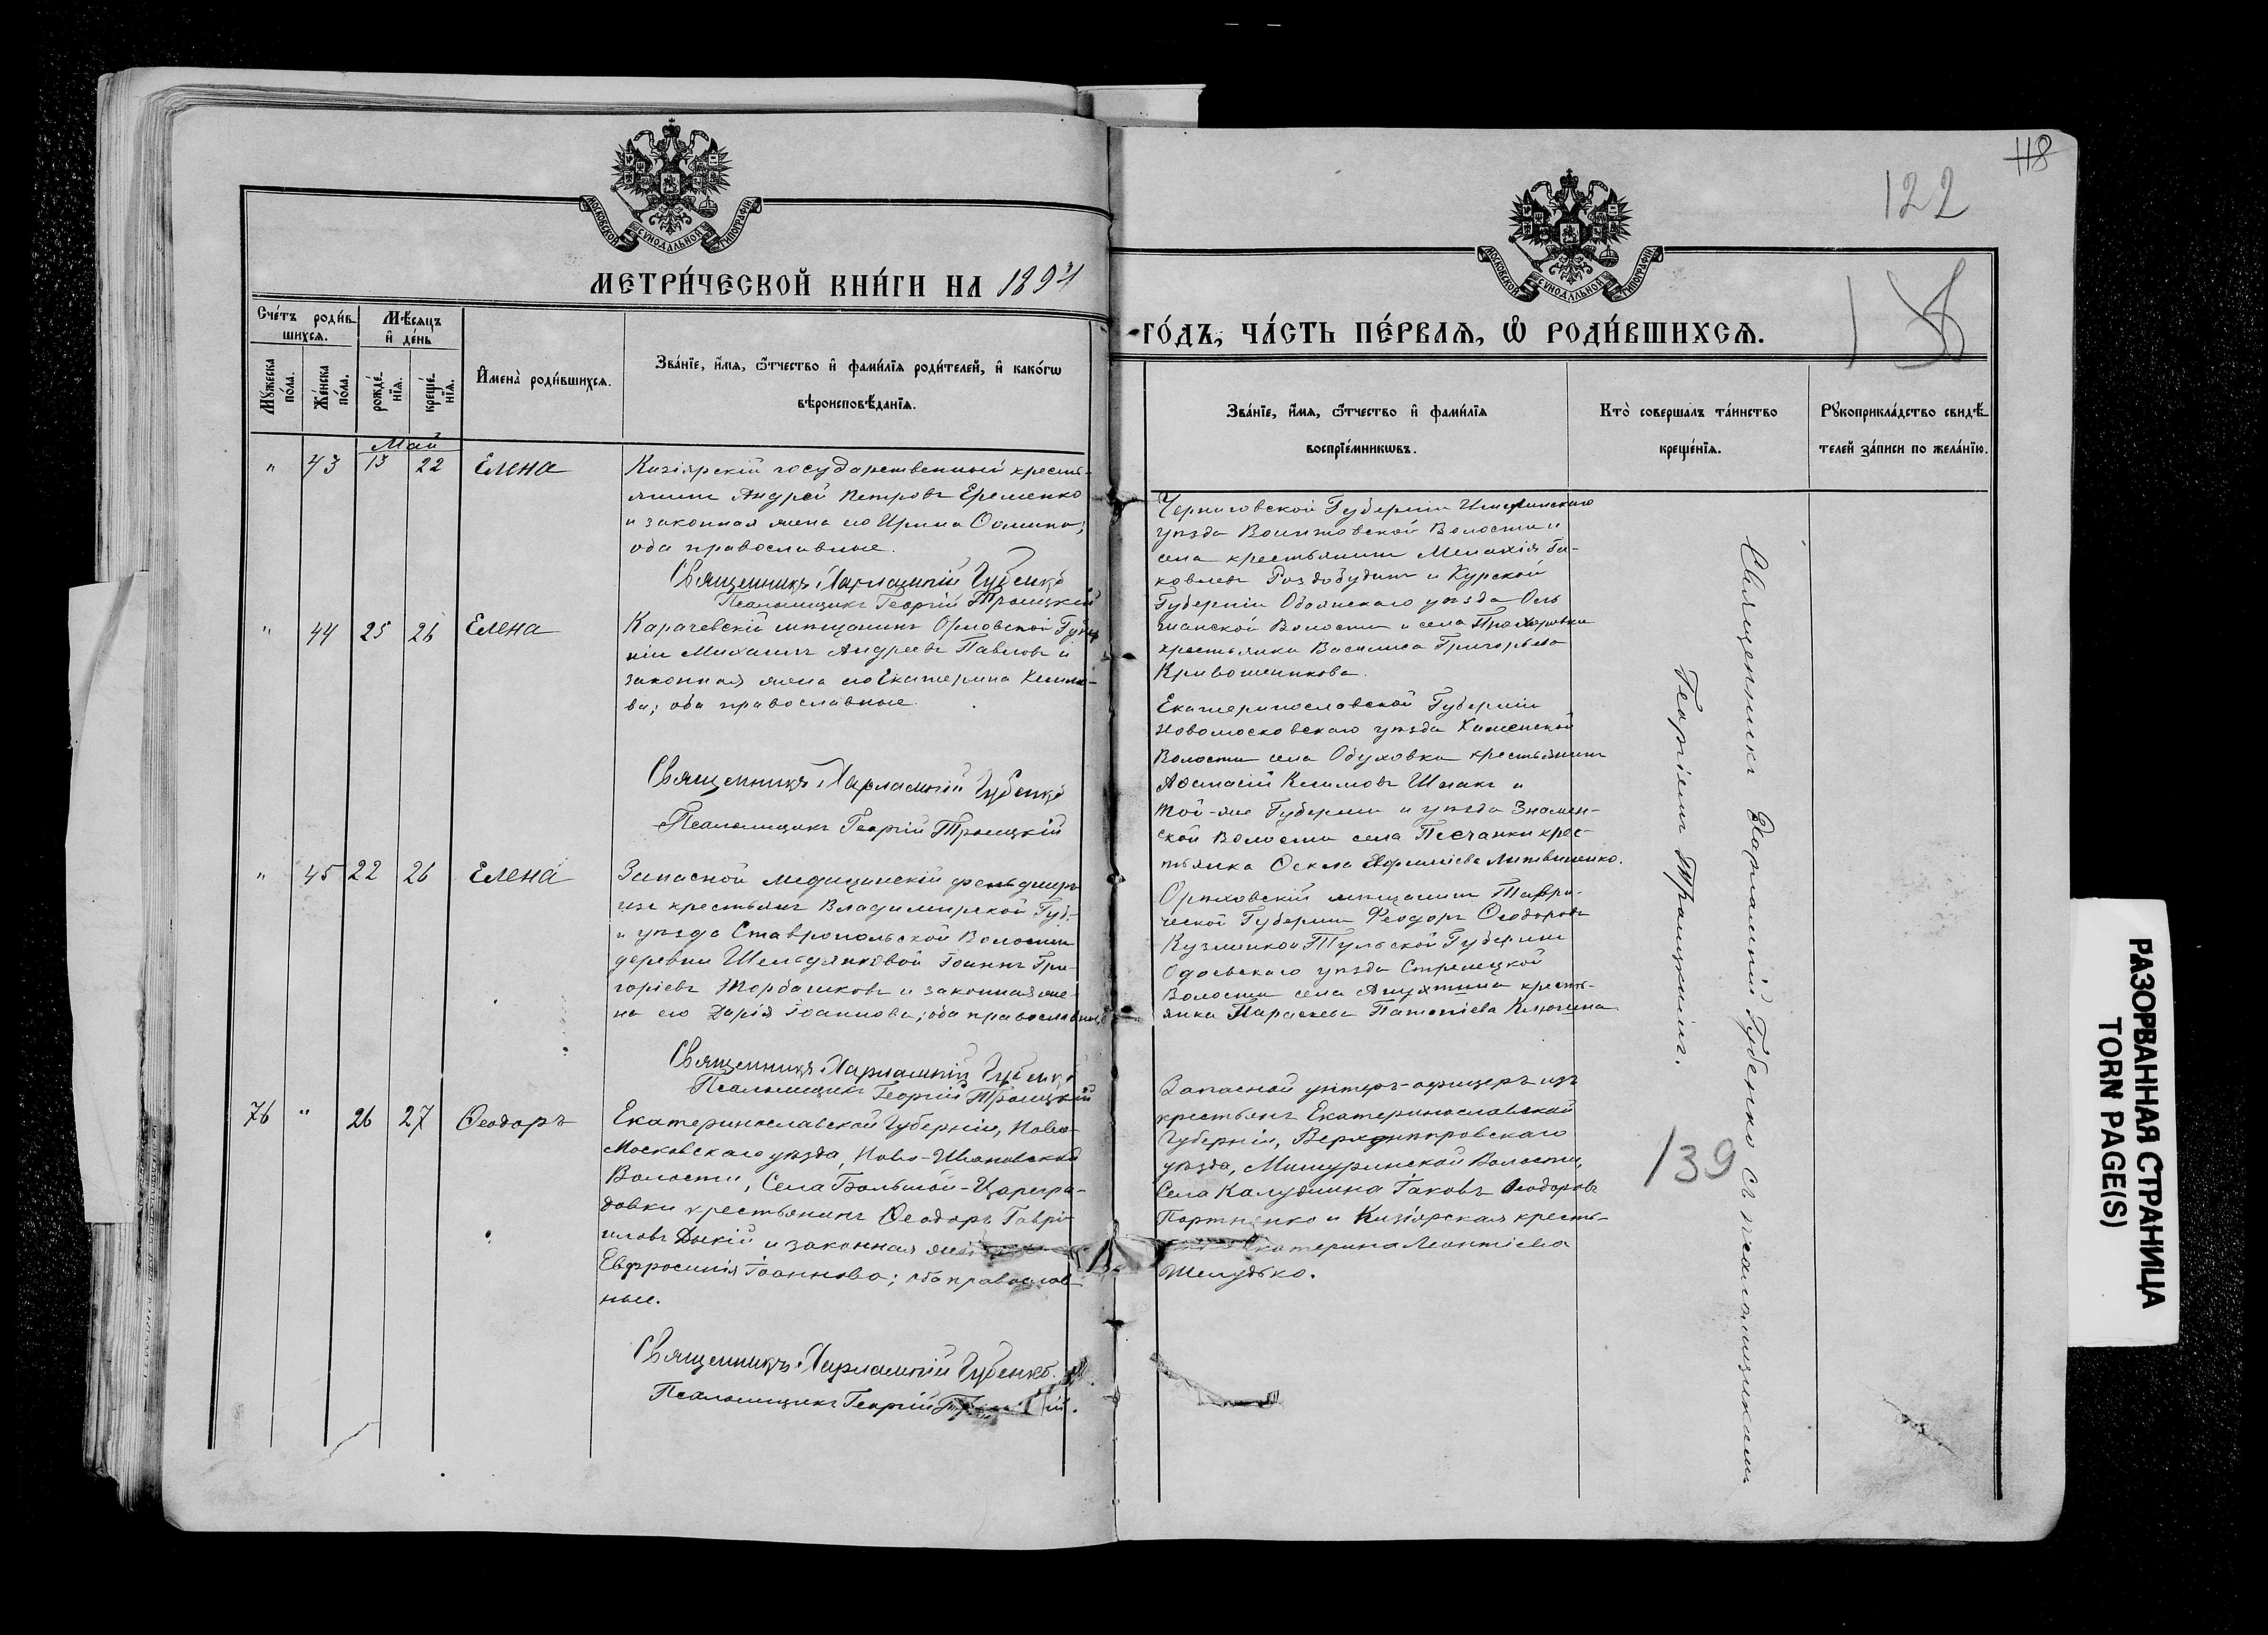 МОСКОВСКОЙ СУНОДАЛЬНОЙ ТИПОГРАФІИ
МЕТРИ́ЧЕСКОЙ КНИ́ГИ НА 1894
Сче́тъ роди́в-
шихся.
Мꙋжеска
по́ла.
Же́нска
по́ла.
Мѣ́сяцъ
и҆ де́нь
рожде́-
нїя.
креще́-
нїя.
И҆мена̀ роди́вшихся.
Зва́нїе, и҆́мя, ѻ҆́тчество и҆ фами́лїя роди́телей, и҆ како́гѡ
вѣроисповѣ́данїя.
Май
" 43 13 22 Елена
Кизіярскій государственный кресть-
янинъ Андрей Петровъ Еременко
и законная жена его Ирина Ѳомина;
оба православные.
Священникъ Харлампій Губенко
Псаломщикъ Георгій Троицкій
" 44 25 26 Елена
Карачевскій мѣщанинъ Орловской Губер
ніи Михаилъ Андреевъ Павловъ и
законная жена его Екатерина Климо-
ва; оба православные.
Священникъ Харлампій Губенко
Псаломщикъ Георгій Троицкій
" 45 22 26 Елена
Запасной медицинскій фельдшеръ
изъ крестьянъ Владимирской Губ.
и уѣзда Ставропольской Волости
деревни Іоаннъ Гри-
горіевъ Торбашковъ и законная же-
на его Дарія Іоаннова; оба православные
Священникъ Харлампій Губенко
Псаломщикъ Георгій Троицкій
76 " 26 27 Ѳеодоръ
Екатеринославской Губерніи, Ново-
Московскаго уѣзда, Ново-Ивановской
Волости, Села Большой-Царегра-
довки крестьянинъ Ѳеодоръ Гаврі-
иловъ Дикій и законная
Евфросинія Іоаннова; оба православ-
ные.
Священникъ Харлампій Губенко.
Псаломщикъ Георгій
118
122
МОСКОВСКОЙ СУНОДАЛЬНОЙ ТИПОГРАФІИ
ГО́ДЪ, ЧА́СТЬ ПЕ́РВАЯ, Ѡ҆ РОДИ́ВШИХСЯ.
Зва́нїе, и҆́мя, ѻ҆́тчество и҆ фами́лїя
воспрїе́мникѡвъ.
Кто̀ соверша́лъ та́инство
креще́нїя.
Рꙋкоприкла́дство свидѣ́-
телей за́писи по жела́нїю.
Черниговской Губерніи
уѣзда Волости и
села крестьянинъ Іа-
ковлевъ Роздобудинъ и Курской
Губерніи Обоянскаго уѣзда Оль
шанской Волости и села Прохоровки
крестьянка Василиса Григорьева
Кривошеикова.
Екатеринославской Губерніи
Новомосковскаго уѣзда
Волости села Обуховки крестьянинъ
Аѳанасій Климовъ Шпакъ и
той-же Губерніи и уѣзда Знамен-
ской Волости села Песчанки крес-
тьянка Ѳекла Литвиненко.
Орѣховскій мѣщанинъ Таври-
ческой Губерніи Ѳеодоръ Ѳеодоровъ
Кузменко и Тульской Губерніи
Одоевскаго уѣзда Стрелецкой
Волости села кресть-
янка Параскева Ключина
Запасной унтеръ-офицеръ изъ
крестьянъ Екатеринославской
Губерніи, Верхднѣпровскаго
уѣзда, Мишуринской Волости,
Села Калужина Іаковъ Ѳеодоровъ
Портненко и Кизіярская кресть-
Екатерина Леонтіева
Шелудько.
Священникъ Харлампій Губенко съ псаломщикомъ
Георгіемъ Троицкимъ.
139
РАЗОРВАННАЯ СТРАНИЦА
TORN PAGE(S)